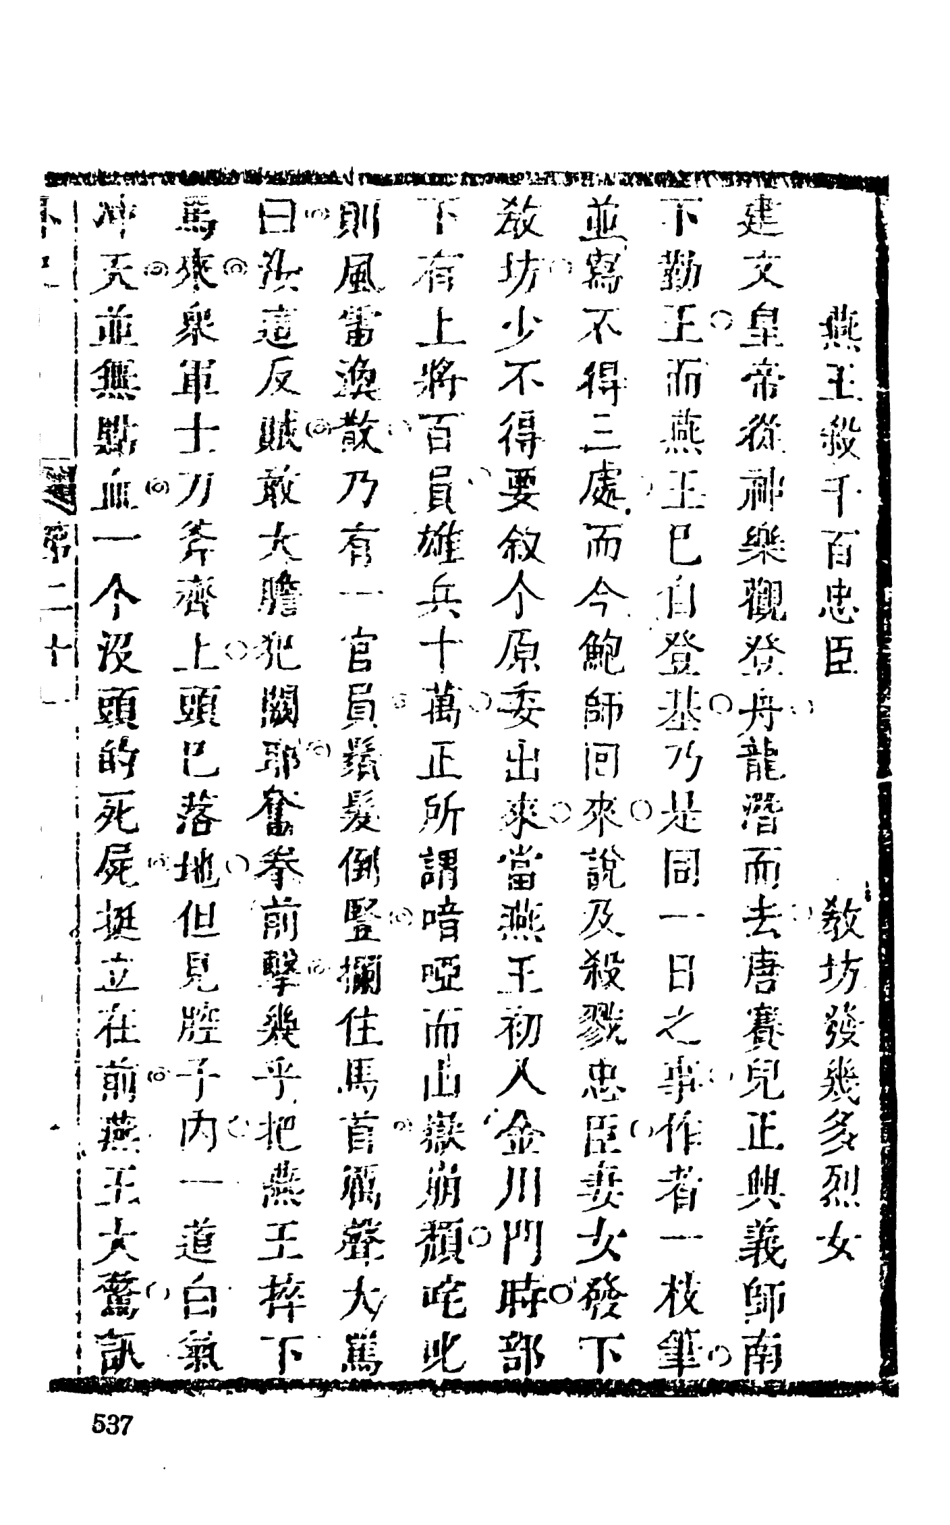 燕王殺千百忠臣　教坊發幾多烈女
建文皇帝從神樂觀登舟龍潛而去唐賽兒正興義師南
下勤王而燕王已自登基乃是同一日之事作者一枝筆
並寫不得三處而今鮑師回來說及殺戮忠臣妻女發下
敎坊少不得要敘个原委出來當燕王初入金川門時部
下有上將百員雄兵十萬正所謂喑啞而山嶽崩頹咤叱
則風雷渙散乃有一官員鬚髮倒豎攔住馬首厲聲大罵
曰汝這反賊敢大膽犯闕耶奮拳前擊幾乎把燕王捽下
馬來衆軍士刀斧齊上頭已落地但見腔子內一道白氣
冲天並無點血一个沒頭的死屍挺立在前燕王大驚訊
第二十
537